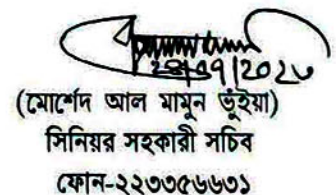 (মোর্শেদ আল মামুন ভুঁইয়া)
সিনিয়র সহকারী সচিব
ফোন-২২৩৩৫৬৬৩১